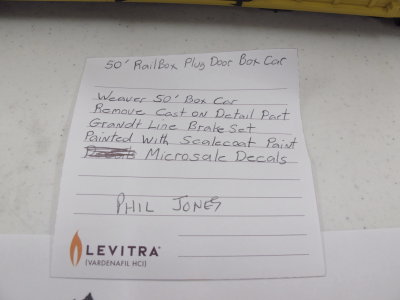 50' RailBox Plug Door Box Car
Weaver 50' Box Car
Remove Cast on Detail Part
Grandt Line Brake Set
Painted With Scalecoat Paint
Microscale Decals
PHIL JONES
LEVITRA®
(VARDENAFIL HCl)